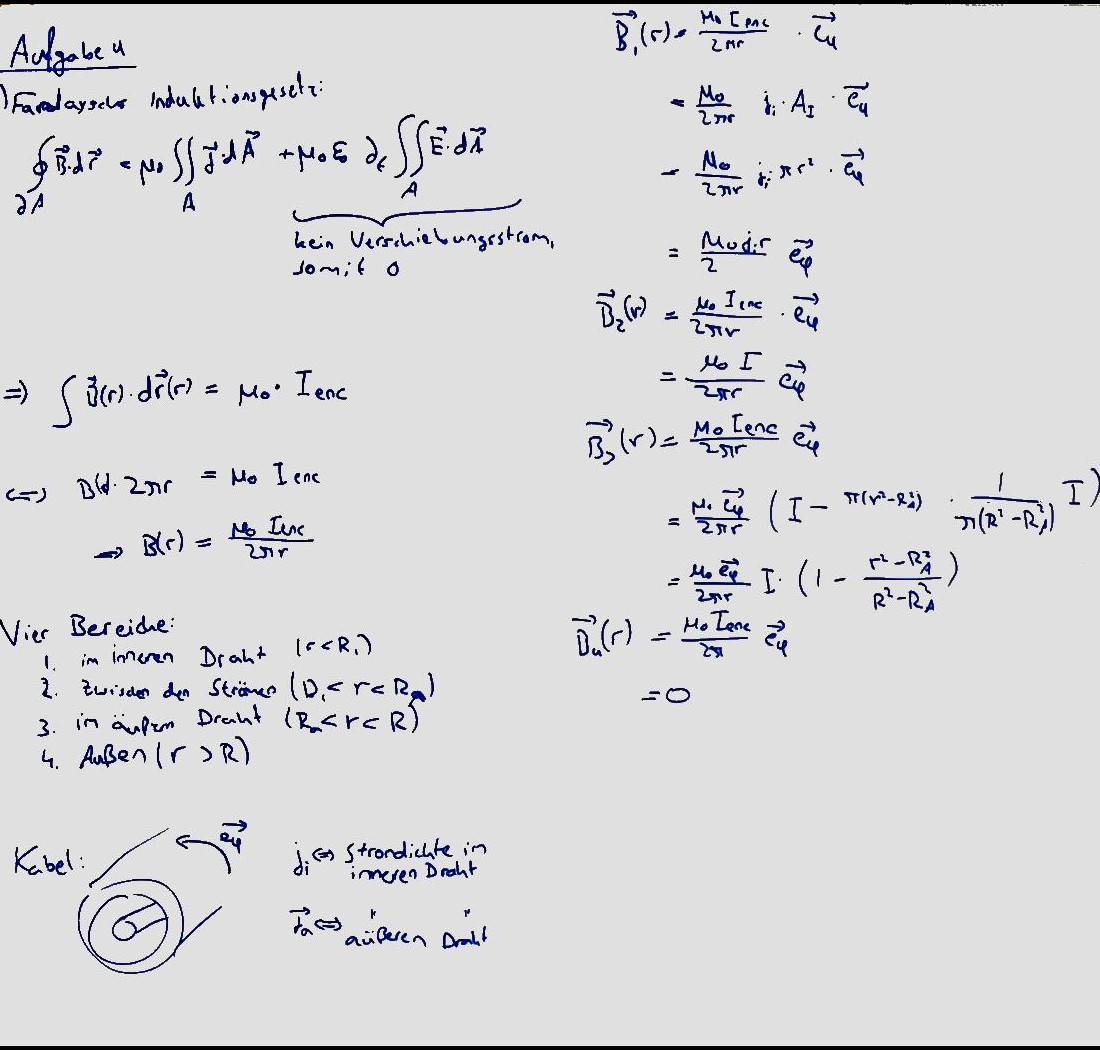 Aufgabe 4
) Faradaysches Induktionsgesetz:
∮_∂A B⃗·dr⃗ = μ₀ ∬_A j⃗·dA⃗ + μ₀ε ∂ₜ ∬_A E⃗·dA⃗
kein Verschiebungsstrom,
somit 0
⇒ ∫ B⃗(r)·dr⃗(r) = μ₀ · I_enc
⇔ B(r)·2πr = μ₀ I_enc
→ B(r) = μ₀ I_enc / 2πr
Vier Bereiche:
1. im inneren Draht (r<R_i)
2. Zwischen den Strömen (R_i < r < R_a)
3. im äußern Draht (R_a < r < R)
4. Außen (r > R)
Kabel:
e⃗_φ
j_i ⇔ Stromdichte im
inneren Draht
j⃗_a ⇔ " "
äußeren Draht
B⃗₁(r) = μ₀ I_enc / 2πr · e⃗_φ
= μ₀ / 2πr j_i · A_I · e⃗_φ
= μ₀ / 2πr j_i π r² · e⃗_φ
= μ₀ j_i r / 2 e⃗_φ
B⃗₂(r) = μ₀ I_enc / 2πr · e⃗_φ
= μ₀ I / 2πr e⃗_φ
B⃗₃(r) = μ₀ I_enc / 2πr e⃗_φ
= μ₀ e⃗_φ / 2πr (I − π(r²−R_A²) · 1 / π(R²−R_A²) I)
= μ₀ e⃗_φ / 2πr I · (1 − r²−R_A² / R²−R_A²)
B⃗₄(r) = μ₀ I_enc / 2π e⃗_φ
= 0